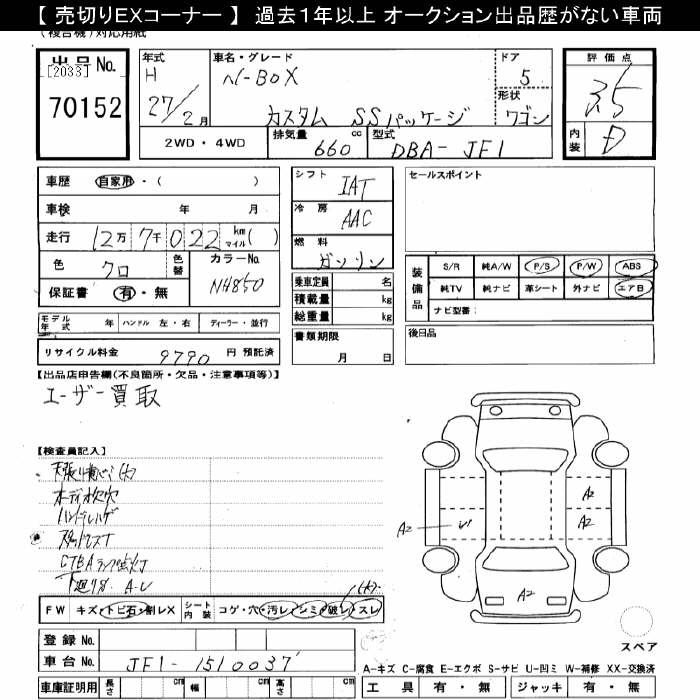 【 売切りEXコーナー 】 過去１年以上 オークション出品歴がない車両
(複合機)対応用紙
出品 No.
[2033]
70152
年式
H
27/2月
車名・グレード
N-BOX
カスタム SSパッケージ
ドア
5
形状
ワゴン
2WD・4WD
排気量
660 cc
型式
DBA-JF1
評価点
3.5
内装
D
車歴 自家用・( )
車検 年 月
走行 12万7千022 km マイル( )
色 クロ
色替
カラーNo
NH850
保証書 有・無
モデル年式 年 ハンドル 左・右 ディーラー・並行
リサイクル料金 9790 円 預託済
シフト
IAT
冷房
AAC
燃料
ガソリン
乗車定員 名
積載量 kg
総重量 kg
書類期限
月 日
セールスポイント
装備品
S/R 純A/W P/S P/W ABS
純TV 純ナビ 革シート 外ナビ エアB
ナビ型番：
後日品
【出品店申告欄(不良箇所・欠品・注意事項等)】
ユーザー買取
【検査員記入】
オーディオ欠穴
ハンドルハゲ
CTBAランプ点灯
下廻りサビ A-U
(大)
A2 U1
A2
A2
A2
FW キズ・トビ石・割レX
シート内装 コゲ・穴・汚レ・シミ・破レ・スレ
登録 No.
車台 No. JF1-1510037
車庫証明用 長さ cm 幅 cm 高さ cm
スペア
A-キズ C-腐食 E-エクボ S-サビ U-凹ミ W-補修 XX-交換済
工具 有・無 ジャッキ 有・無